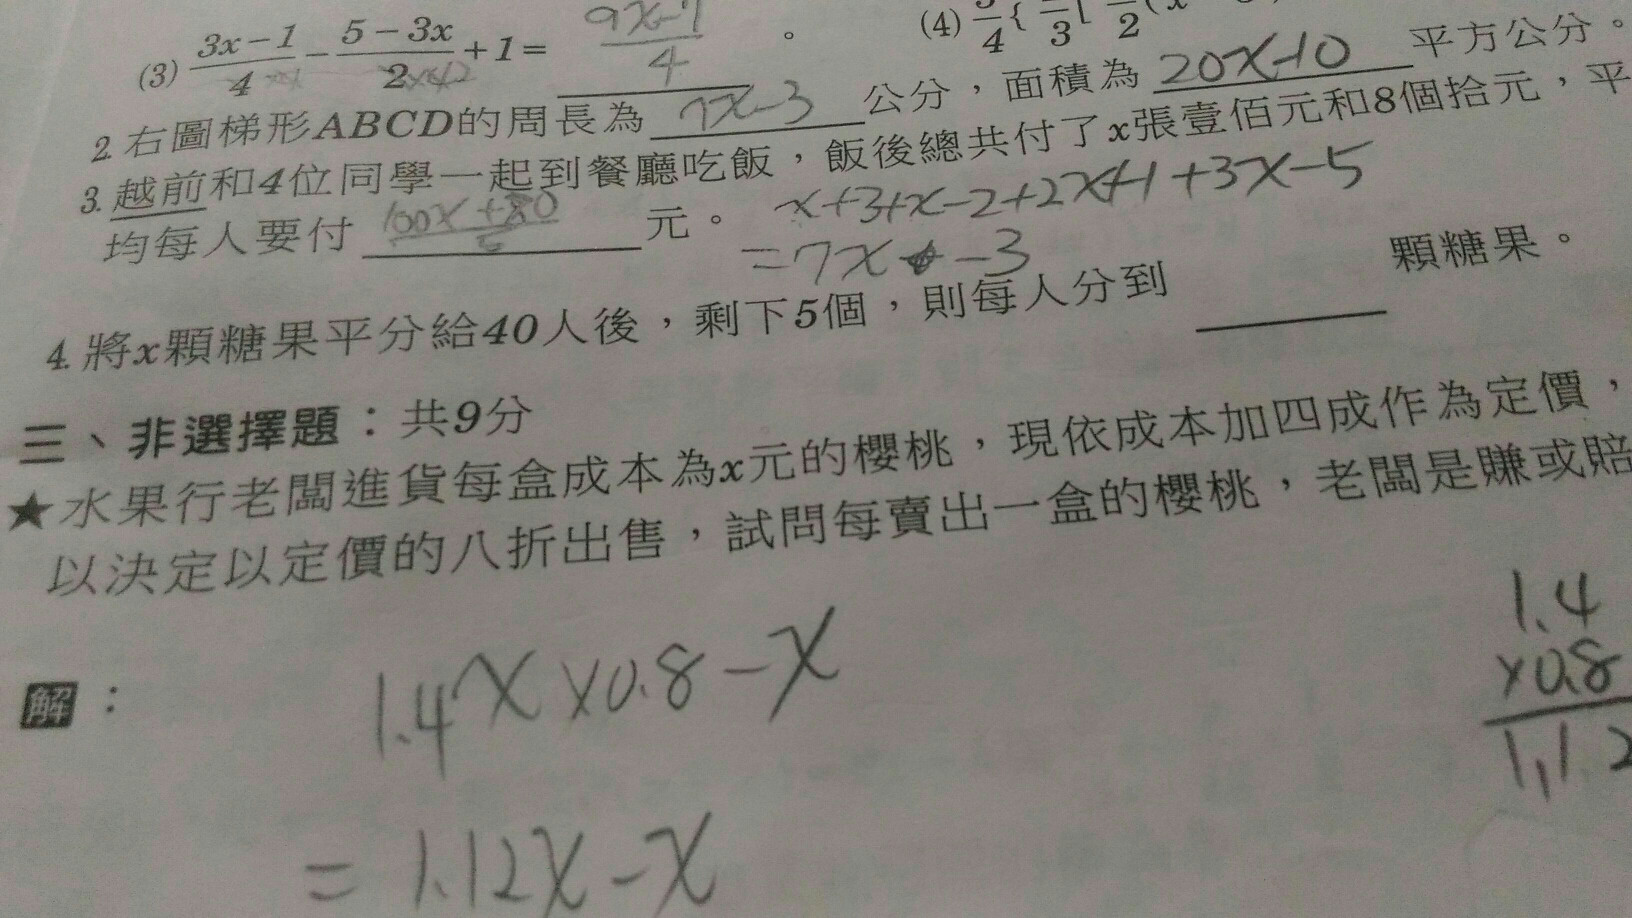 (3) (3x-1)/4 - (5-3x)/2 + 1 = (9x-7)/4 。
(4)
2. 右圖梯形ABCD的周長為 7x-3 公分，面積為 20x-10 平方公分。
3. 越前和4位同學一起到餐廳吃飯，飯後總共付了x張壹佰元和8個拾元，平
均每人要付 (100x+80)/5 元。 x+3+x-2+2x+1+3x-5
=7x-3
4. 將x顆糖果平分給40人後，剩下5個，則每人分到 顆糖果。
三、非選擇題：共9分
★水果行老闆進貨每盒成本為x元的櫻桃，現依成本加四成作為定價，
以決定以定價的八折出售，試問每賣出一盒的櫻桃，老闆是賺或賠
解：
1.4x×0.8-x
=1.12x-x
1.4
×0.8
1.12